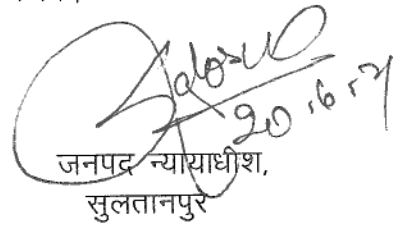 20.6.21
जनपद न्यायाधीश,
सुलतानपुर